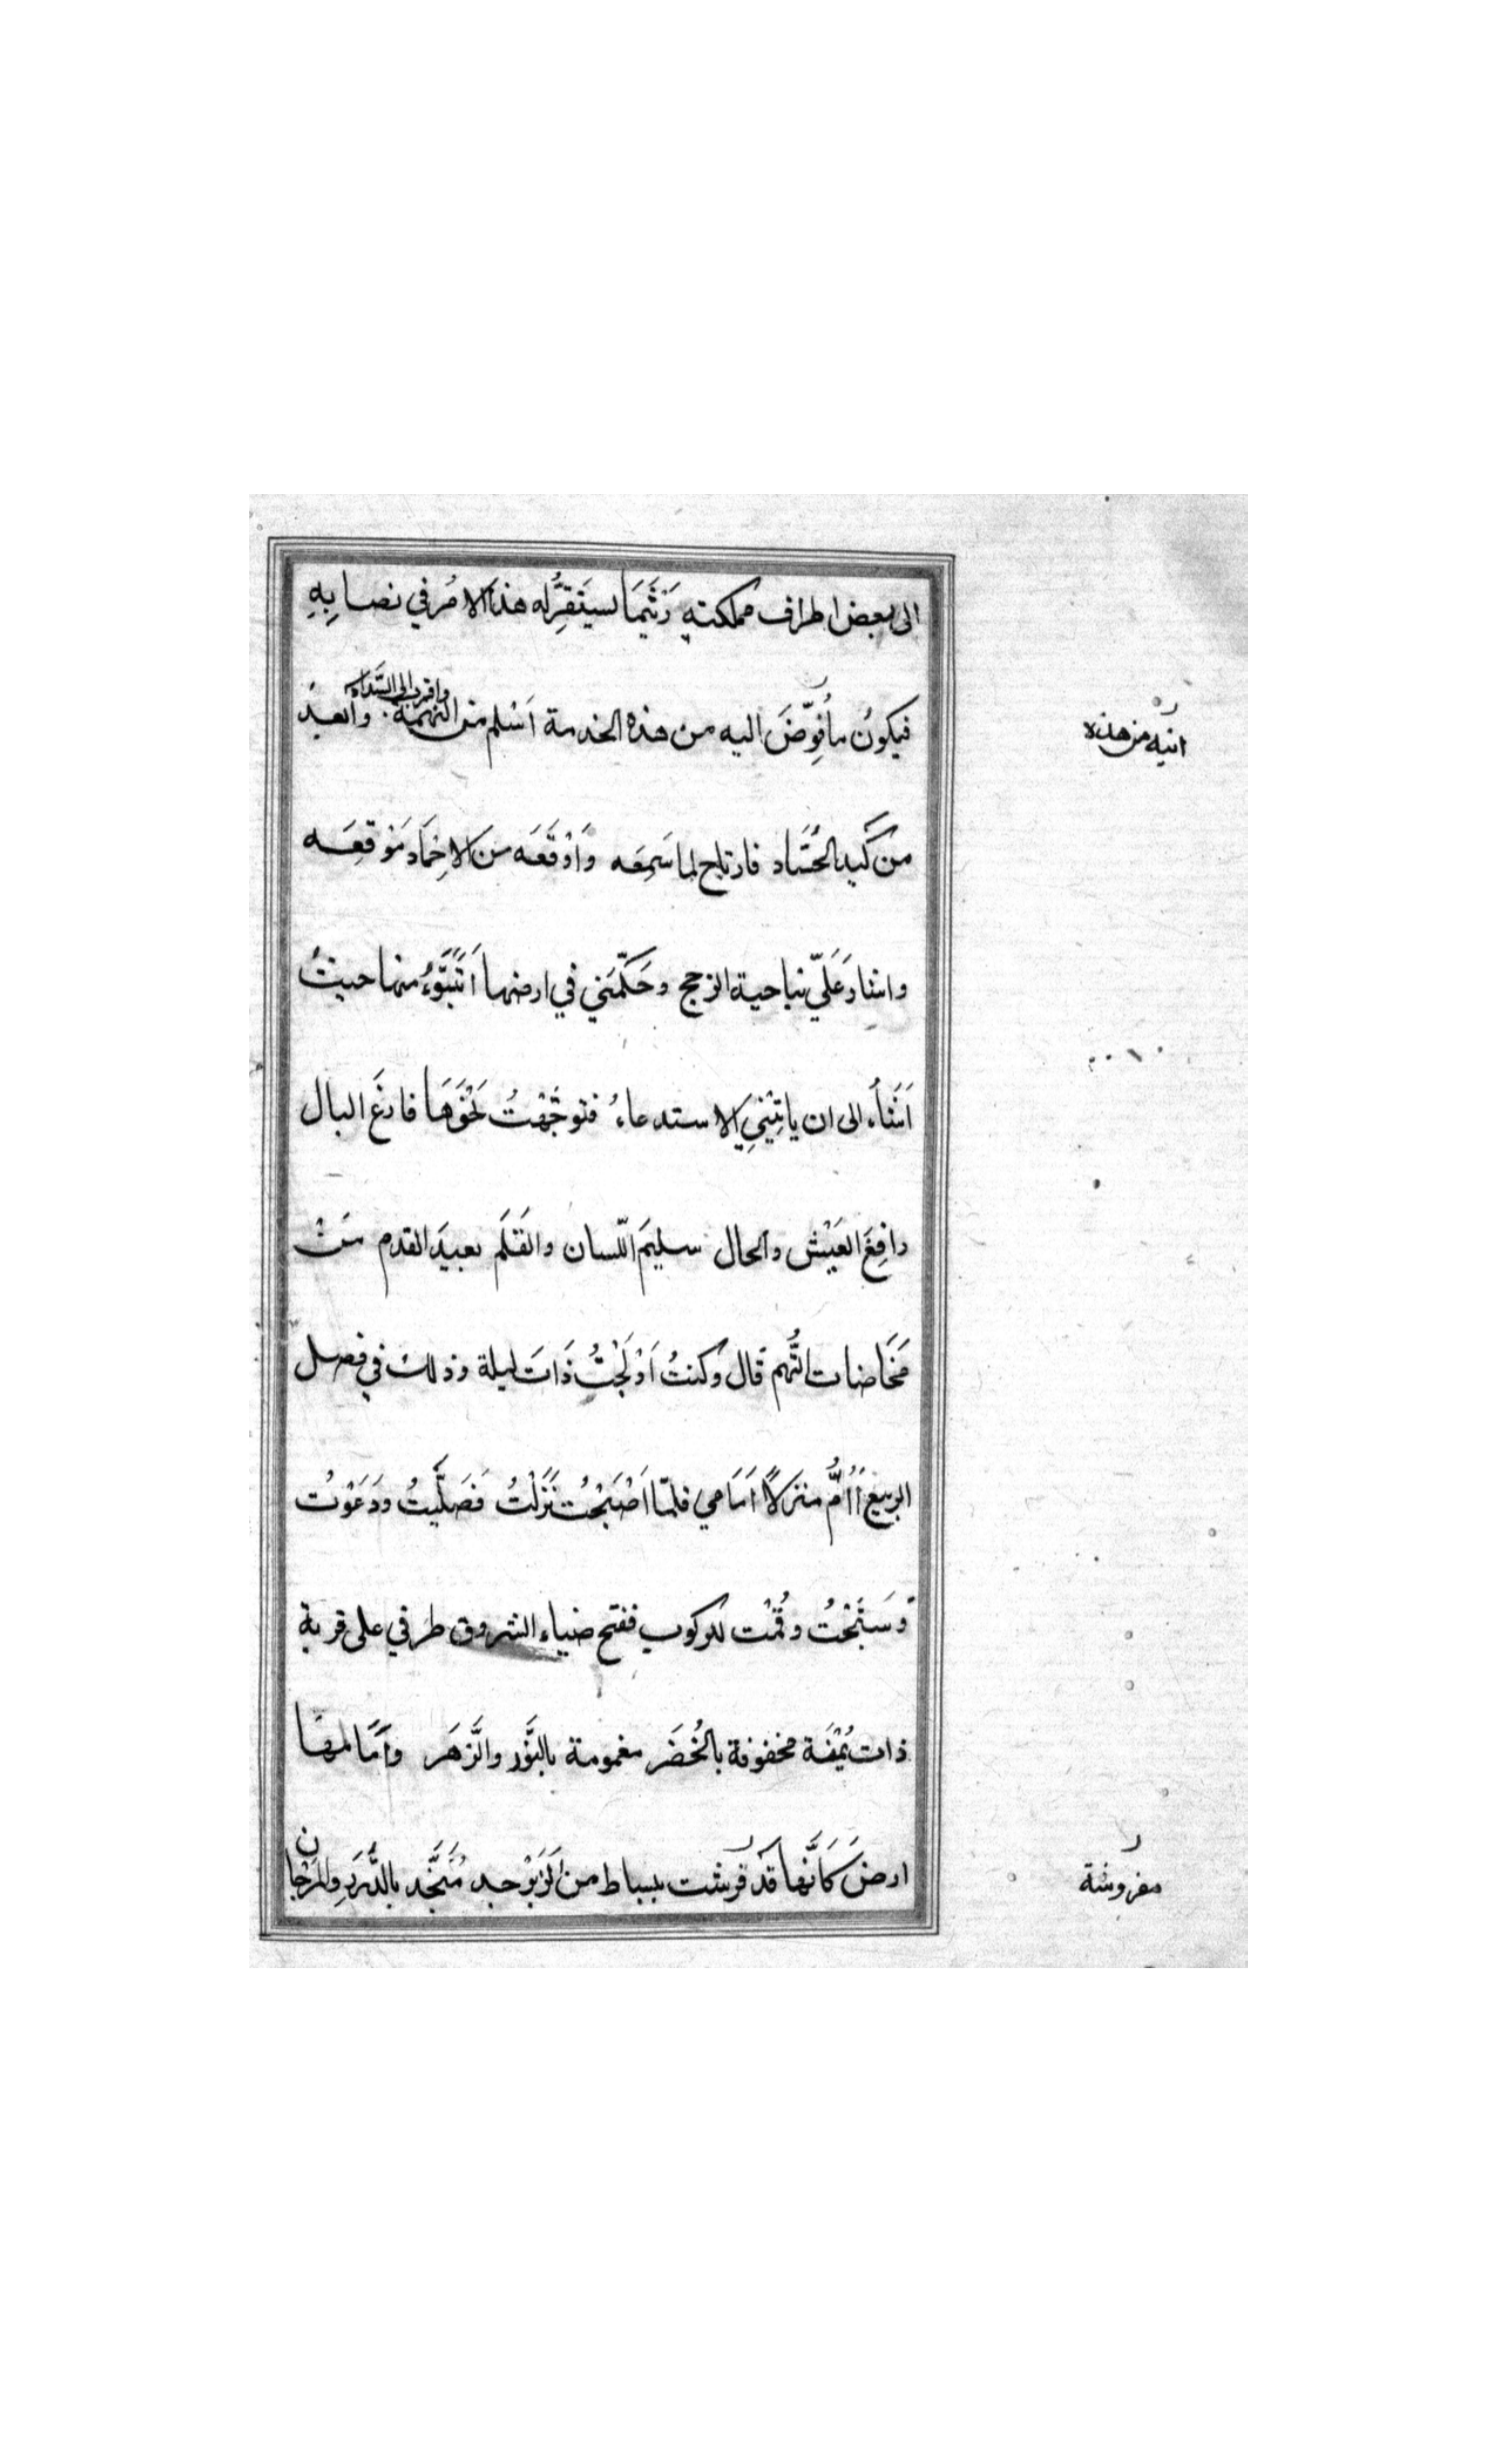 الى بعض اطراف مملكته رَيْثَمَا يستَقِرُّ له هذا الامرُ في نصابِهِ
واقرب الى السَّداد
فيكونُ ما اُفَوِّضَ اليه من هذه الخدمة اَسْلم من التهمة وابعدُ
اليه من هذه
من كَيد الحُسَّاد فارتاح لما سَمِعَه وَاَوْقَعَه من الاِحْمَاد مَوْقِعَه
واشار عَلَيّ بناحية الرخج وحَكَّمَني في ارضها اَتَبَوَّءُ منها حيثُ
اَشَاُء الى ان ياتِيَنِي الاستدعاءُ فتوجَّهْتُ نَحْوَهَا فارغَ البال
رافِغَ العَيْش والحال سليمَ اللّسان والقَلَم بعيدَ القدم مِنْ
مَخَاضات التُّهم قال وكنتُ اَدْلَجْتُ ذَاتَ ليلة وذلك في فصل
الربيع اَاُمُّ منزلاً اَمَامي فلمّا اَصْبَحْتُ نَزَلْتُ فَصَلَّيتُ ودَعَوْتُ
وسَبَّحْتُ وقُمْت للركوب ففتح ضياء الشروق طرفي على قرية
ذات يُمْنَة محفوفة بالخُضَر مغمومة بالنَّور والزَّهَر وَاَمَامها
ارضَ كَاَنَّها قَد فرشت ببساط من الزَبَرْجد مُنَجَّد بالدُّرَرِ والمَرْجان
مفروشة